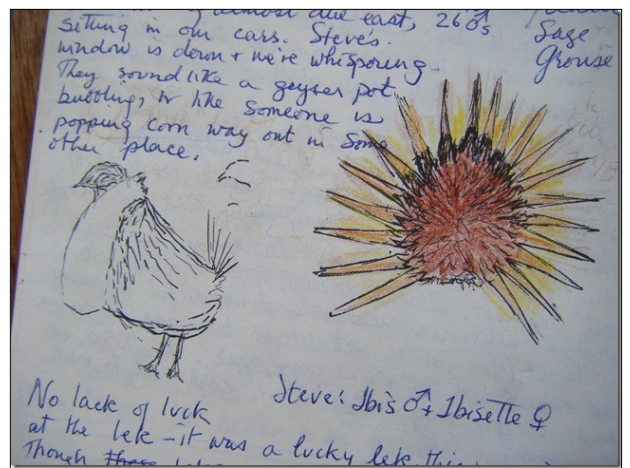 of almost due east, 26 ♂s
sitting in our cars. Steve's
window is down + we're whispering
They sound like a geyser pot
bubbling, or like someone is
popping corn way out in some
other place.
Sage
Grouse
Steve: Ibis ♂ + Ibisette ♀
No lack of luck
at the lek – it was a lucky lek
Though